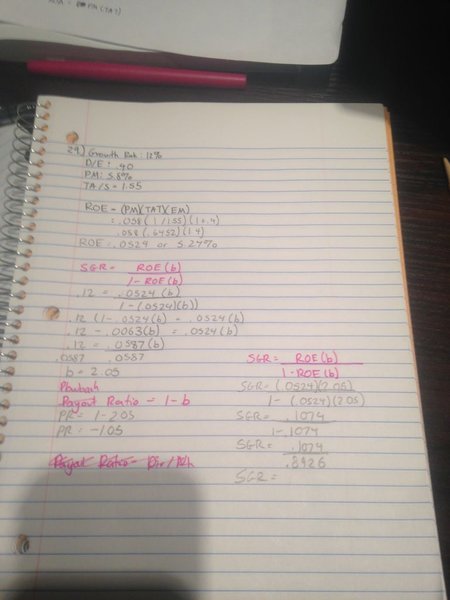 29.) Growth Rate: 12%
D/E: .40
PM: 5.8%
TA/S = 1.55
ROE = (PM)(TAT)(EM)
= .058 (1/1.55)(1+.4)
.058 (.6452)(1.4)
ROE = .0524 or 5.24%
SGR = ROE(b)
1-ROE(b)
.12 = .0524(b)
1-(.0524)(b))
.12 (1-.0524(b) = .0524(b)
.12 - .0063(b) = .0524(b)
.12 = .0587(b)
.0587 .0587
b = 2.05
Payout Ratio = 1-b
PR = 1-2.05
PR = -1.05
Payout Ratio =
SGR = ROE(b)
1-ROE(b)
SGR = (.0524)(2.05)
1- (.0524)(2.05)
SGR = .1074
1-.1074
SGR = .1074
.8926
SGR =